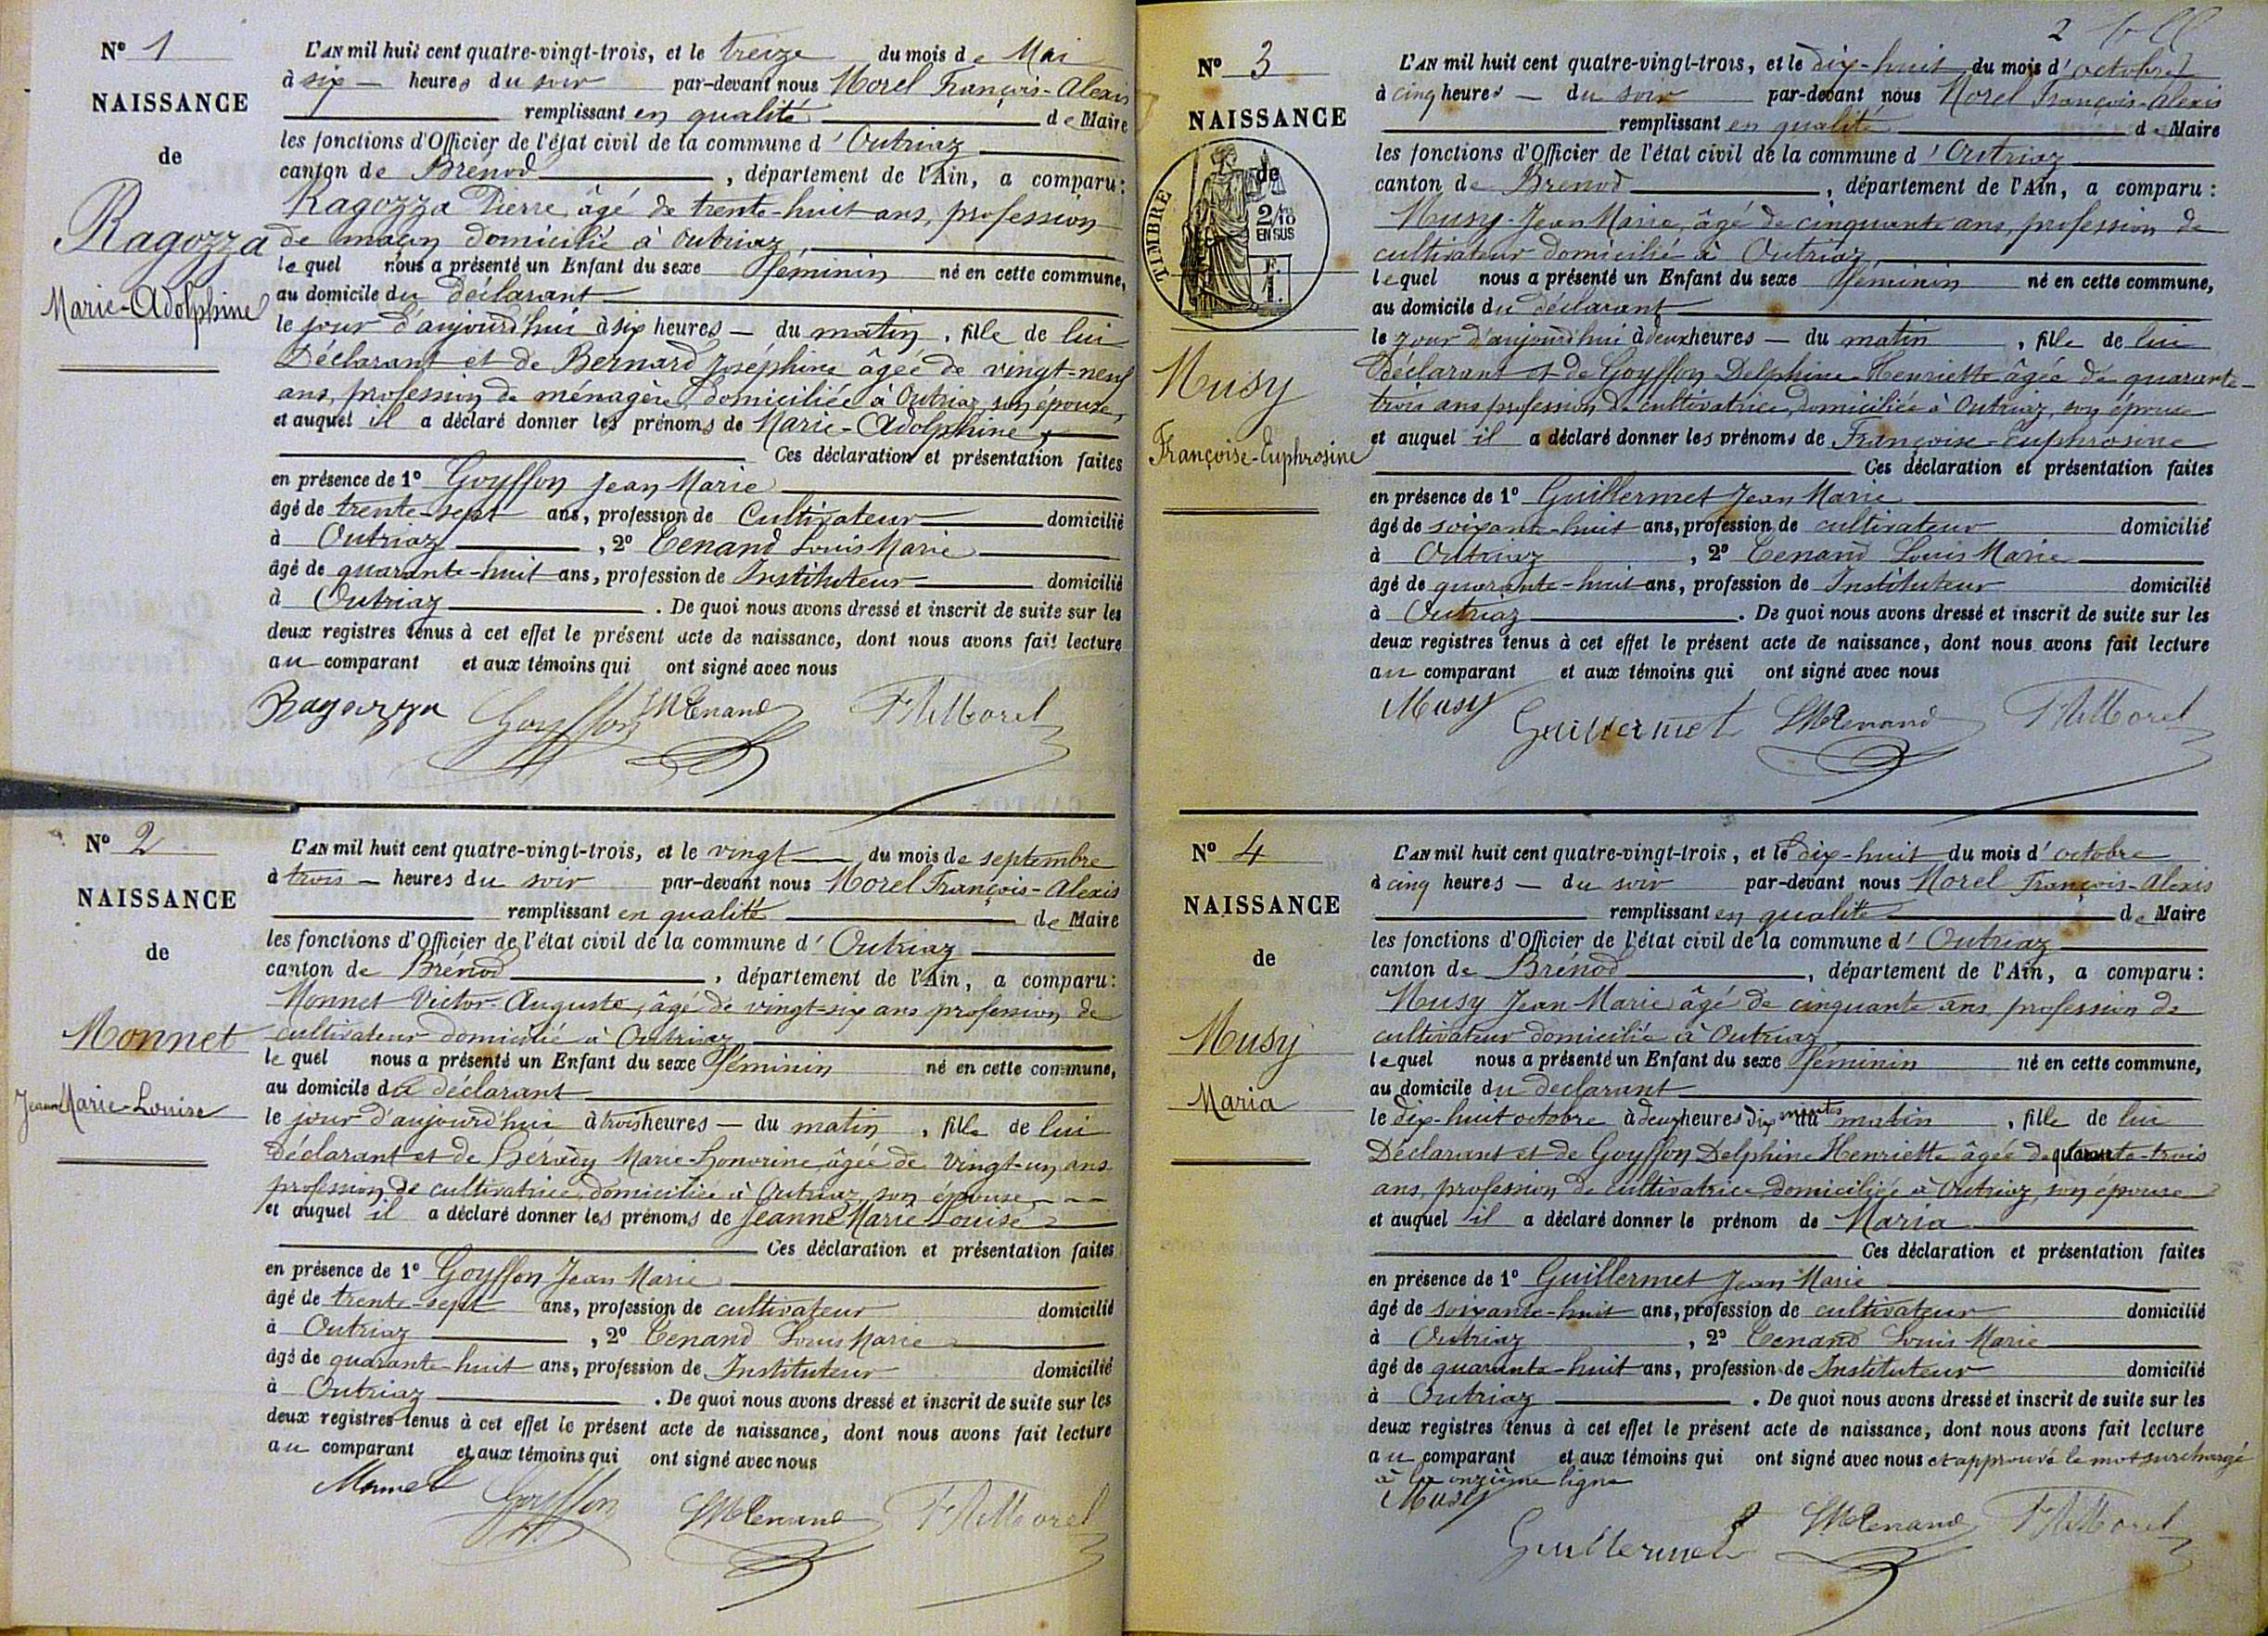 N° 1
NAISSANCE
de
Ragozza
Marie-Adolphine
L'AN mil huit cent quatre-vingt-trois, et le treize du mois de Mai
à six heures du soir par-devant nous Morel François-Alexis
remplissant en qualité de Maire
les fonctions d'Officier de l'état civil de la commune d'Outriaz
canton de Brénod, département de l'Ain, a comparu:
Ragozza Pierre, âgé de trente-huit ans, profession
de maçon domicilié à Outriaz,
lequel nous a présenté un Enfant du sexe féminin né en cette commune,
au domicile du déclarant
le jour d'aujourd'hui à six heures du matin, fille de lui
Déclarant et de Bernard Joséphine âgée de vingt-neuf
ans, profession de ménagère, domiciliée à Outriaz, son épouse,
et auquel il a déclaré donner les prénoms de Marie-Adolphine
Ces déclaration et présentation faites
en présence de 1° Goyffon Jean Marie
âgé de trente-sept ans, profession de Cultivateur domicilié
à Outriaz, 2° Tenand Louis Marie
âgé de quarante-huit ans, profession de Instituteur domicilié
à Outriaz. De quoi nous avons dressé et inscrit de suite sur les
deux registres tenus à cet effet le présent acte de naissance, dont nous avons fait lecture
au comparant et aux témoins qui ont signé avec nous
Ragozza Goyffon LMTenand FAMorel
N° 2
NAISSANCE
de
Monnet
Jeanne Marie-Louise
L'AN mil huit cent quatre-vingt-trois, et le vingt du mois de septembre
à trois heures du soir par-devant nous Morel François-Alexis
remplissant en qualité de Maire
les fonctions d'Officier de l'état civil de la commune d'Outriaz
canton de Brénod, département de l'Ain, a comparu:
Monnet Victor-Auguste, âgé de vingt-six ans profession de
cultivateur domicilié à Outriaz
lequel nous a présenté un Enfant du sexe féminin né en cette commune,
au domicile du déclarant
le jour d'aujourd'hui à trois heures du matin, fille de lui
Déclarant et de Hérady Marie-Honorine, âgée de vingt-un ans
profession de cultivatrice, domiciliée à Outriaz, son épouse
et auquel il a déclaré donner les prénoms de Jeanne Marie Louise
Ces déclaration et présentation faites
en présence de 1° Goyffon Jean Marie
âgé de trente-sept ans, profession de cultivateur domicilié
à Outriaz, 2° Tenand Louis Marie
âgé de quarante-huit ans, profession de Instituteur domicilié
à Outriaz. De quoi nous avons dressé et inscrit de suite sur les
deux registres tenus à cet effet le présent acte de naissance, dont nous avons fait lecture
au comparant et aux témoins qui ont signé avec nous
Monnet Goyffon LMTenand FAMorel
2
N° 3
NAISSANCE
de
TIMBRE
2/10
EN SUS
Musy
Françoise-Euphrosine
L'AN mil huit cent quatre-vingt-trois, et le dix-huit du mois d'octobre
à cinq heures du soir par-devant nous Morel François-Alexis
remplissant en qualité de Maire
les fonctions d'Officier de l'état civil de la commune d'Outriaz
canton de Brénod, département de l'Ain, a comparu:
Musy Jean Marie, âgé de cinquante ans, profession de
cultivateur domicilié à Outriaz
lequel nous a présenté un Enfant du sexe féminin né en cette commune,
au domicile du déclarant
le jour d'aujourd'hui à deux heures du matin, fille de lui
Déclarant et de Goyffon Delphine-Henriette âgée de quarante-
trois ans, profession de cultivatrice, domiciliée à Outriaz, son épouse
et auquel il a déclaré donner les prénoms de Françoise-Euphrosine
Ces déclaration et présentation faites
en présence de 1° Guillermet Jean Marie
âgé de soixante-huit ans, profession de cultivateur domicilié
à Outriaz, 2° Tenand Louis Marie
âgé de quarante-huit ans, profession de Instituteur domicilié
à Outriaz. De quoi nous avons dressé et inscrit de suite sur les
deux registres tenus à cet effet le présent acte de naissance, dont nous avons fait lecture
au comparant et aux témoins qui ont signé avec nous
Musy Guillermet LMTenand FAMorel
N° 4
NAISSANCE
de
Musy
Maria
L'AN mil huit cent quatre-vingt-trois, et le dix-huit du mois d'octobre
à cinq heures du soir par-devant nous Morel François-Alexis
remplissant en qualité de Maire
les fonctions d'Officier de l'état civil de la commune d'Outriaz
canton de Brénod, département de l'Ain, a comparu:
Musy Jean Marie âgé de cinquante ans, profession de
cultivateur domicilié à Outriaz
lequel nous a présenté un Enfant du sexe féminin né en cette commune,
au domicile du déclarant
le dix-huit octobre à deux heures dix minutes du matin, fille de lui
Déclarant et de Goyffon Delphine Henriette âgée de quarante-trois
ans, profession de cultivatrice domiciliée à Outriaz, son épouse
et auquel il a déclaré donner le prénom de Maria
Ces déclaration et présentation faites
en présence de 1° Guillermet Jean Marie
âgé de soixante-huit ans, profession de cultivateur domicilié
à Outriaz, 2° Tenand Louis Marie
âgé de quarante-huit ans, profession de Instituteur domicilié
à Outriaz. De quoi nous avons dressé et inscrit de suite sur les
deux registres tenus à cet effet le présent acte de naissance, dont nous avons fait lecture
au comparant et aux témoins qui ont signé avec nous et approuvé le mot surchargé
à la onzième ligne
Musy Guillermet LMTenand FAMorel